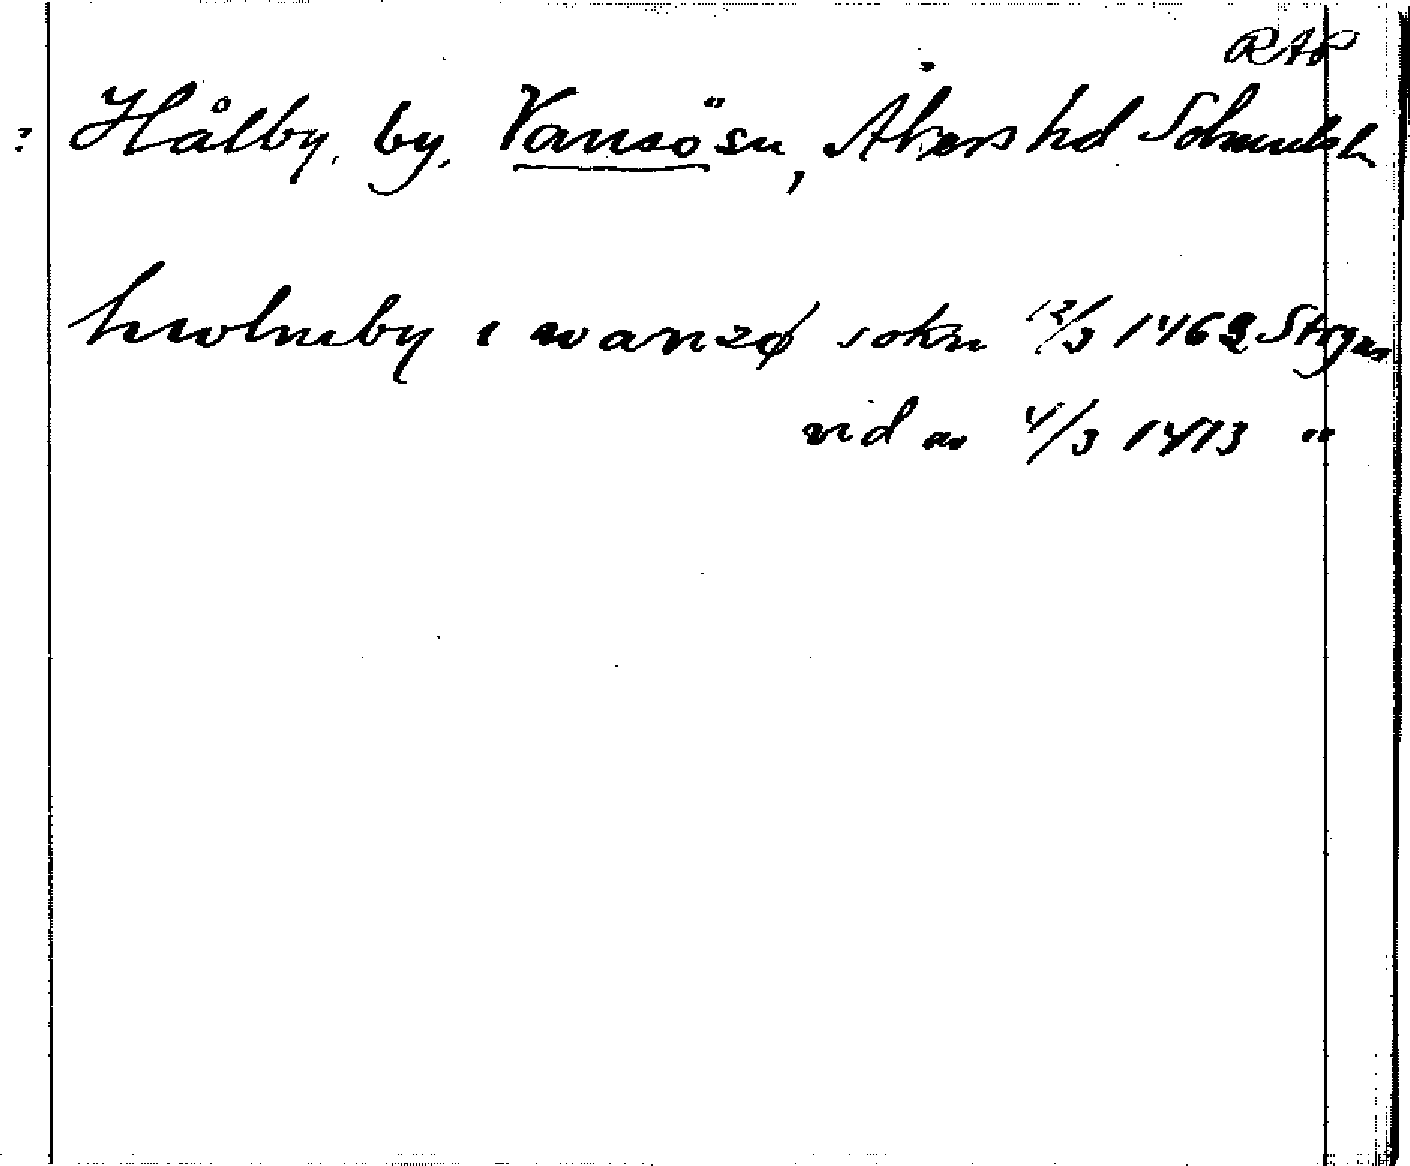 RAP
? Hålby, by, Vansö sn, Åkers hd Södermanl. l.
hwolmby i wanzø sokn 12/3 1462 Strgns
vid av 4/3 1473 "